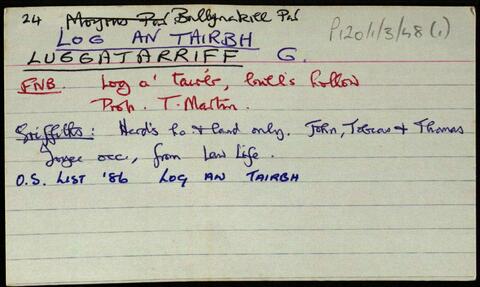 24 Moyrus Par Ballynakill Par
P120/1/3/48 (1)
LOG AN TAIRBH
LUGGATARRIFF G.
FNB. Log a' tairbh, bull's hollow
Prop. T. Martin.
Griffiths: Herd's ho & land only. John, Tobias & Thomas
Joyce occ., from Law Life.
O.S. LIST '86 LOG AN TAIRBH